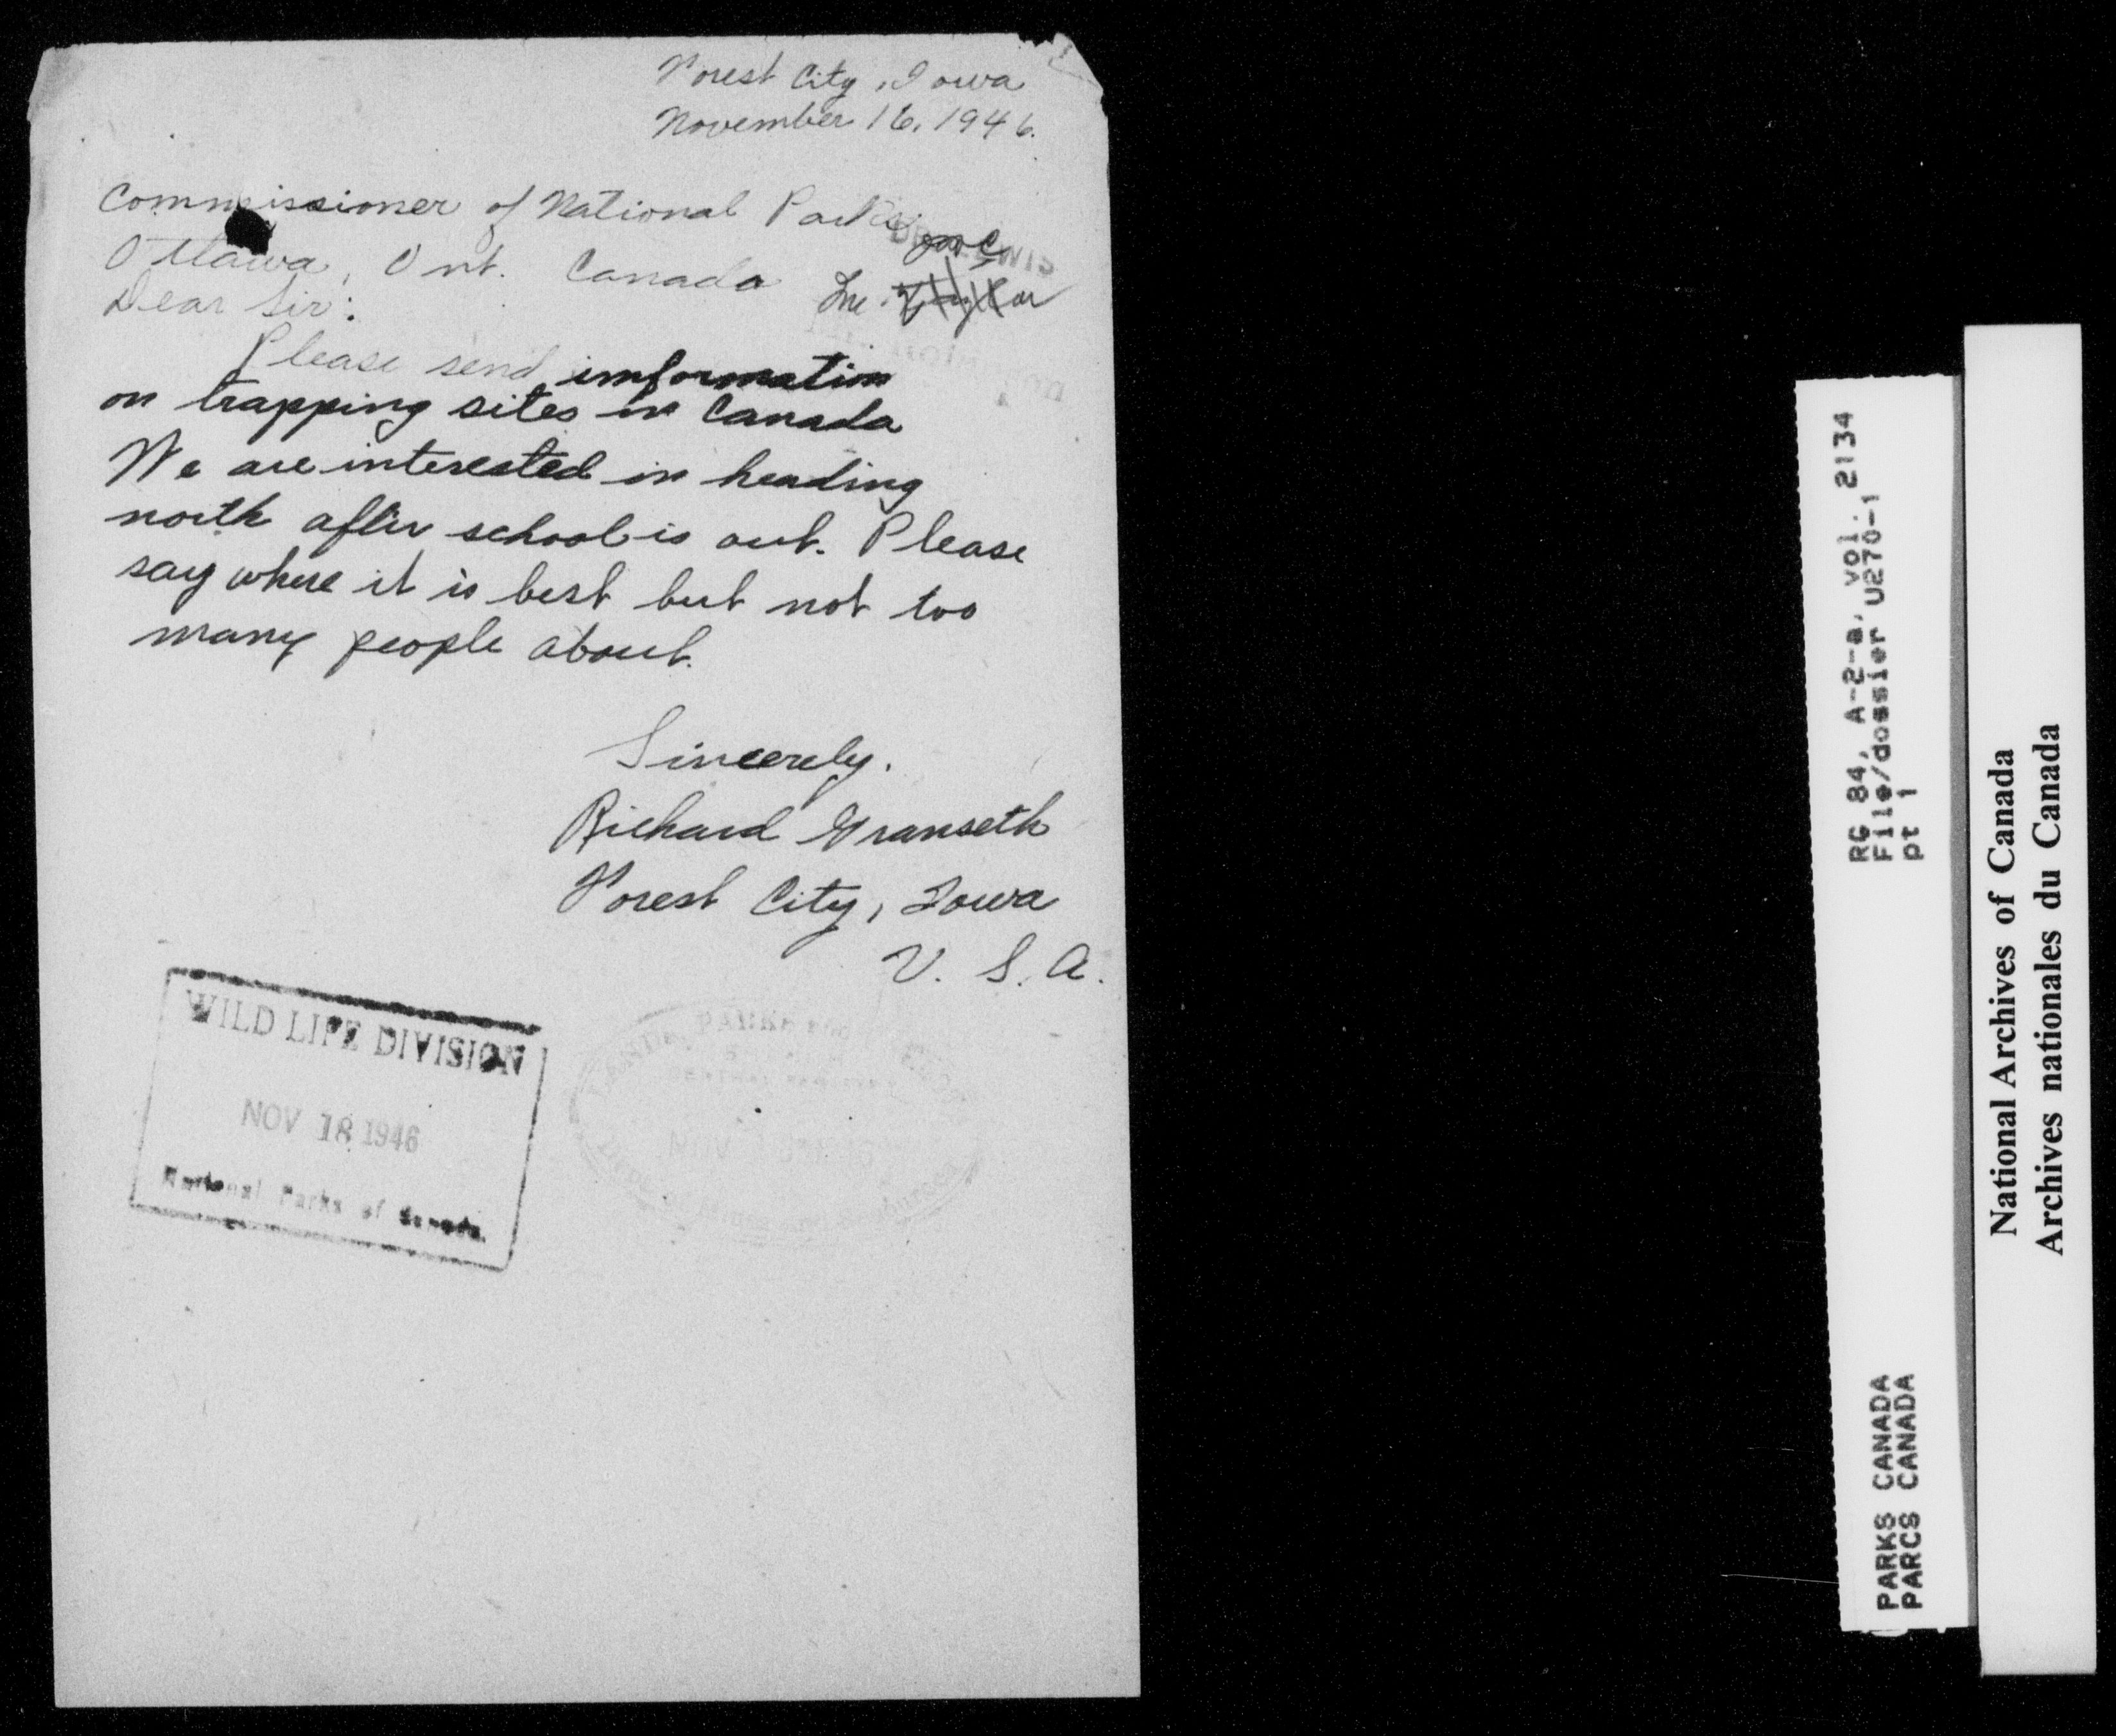 Forest City, Iowa
November 16, 1946.
Commissioner of National Parks
Ottawa, Ont. Canada
Dear Sir:
Please send imformation
on trapping sites in Canada
We are interested in heading
north after school is out. Please
say where it is best but not too
many people about.
Sincerely.
Richard Granseth
Forest City, Iowa
U. S. A.
WILD LIFE DIVISION
NOV 18 1946
National Parks of Canada.
PARKS
NOV
RG 84, A-2-a, vol. 2134
File/dossier U270-1
pt 1
PARKS CANADA
PARCS CANADA
National Archives of Canada
Archives nationales du Canada